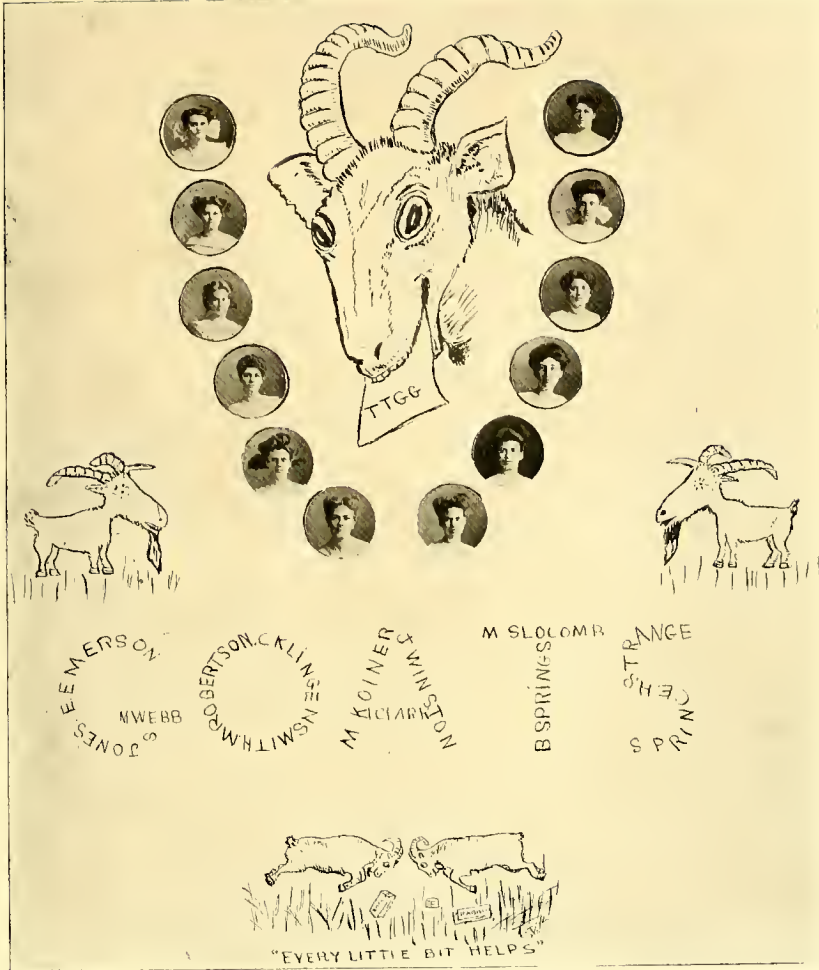 TTGG
E EMERSON.
M WEBB
S JONES.
M ROBERTSON. C KLINGENSMITH.
M KOINER
WINSTON
CLARK
M SLOCOMB
B SPRINGS
STRANGE
"EVERY LITTLE BIT HELPS"